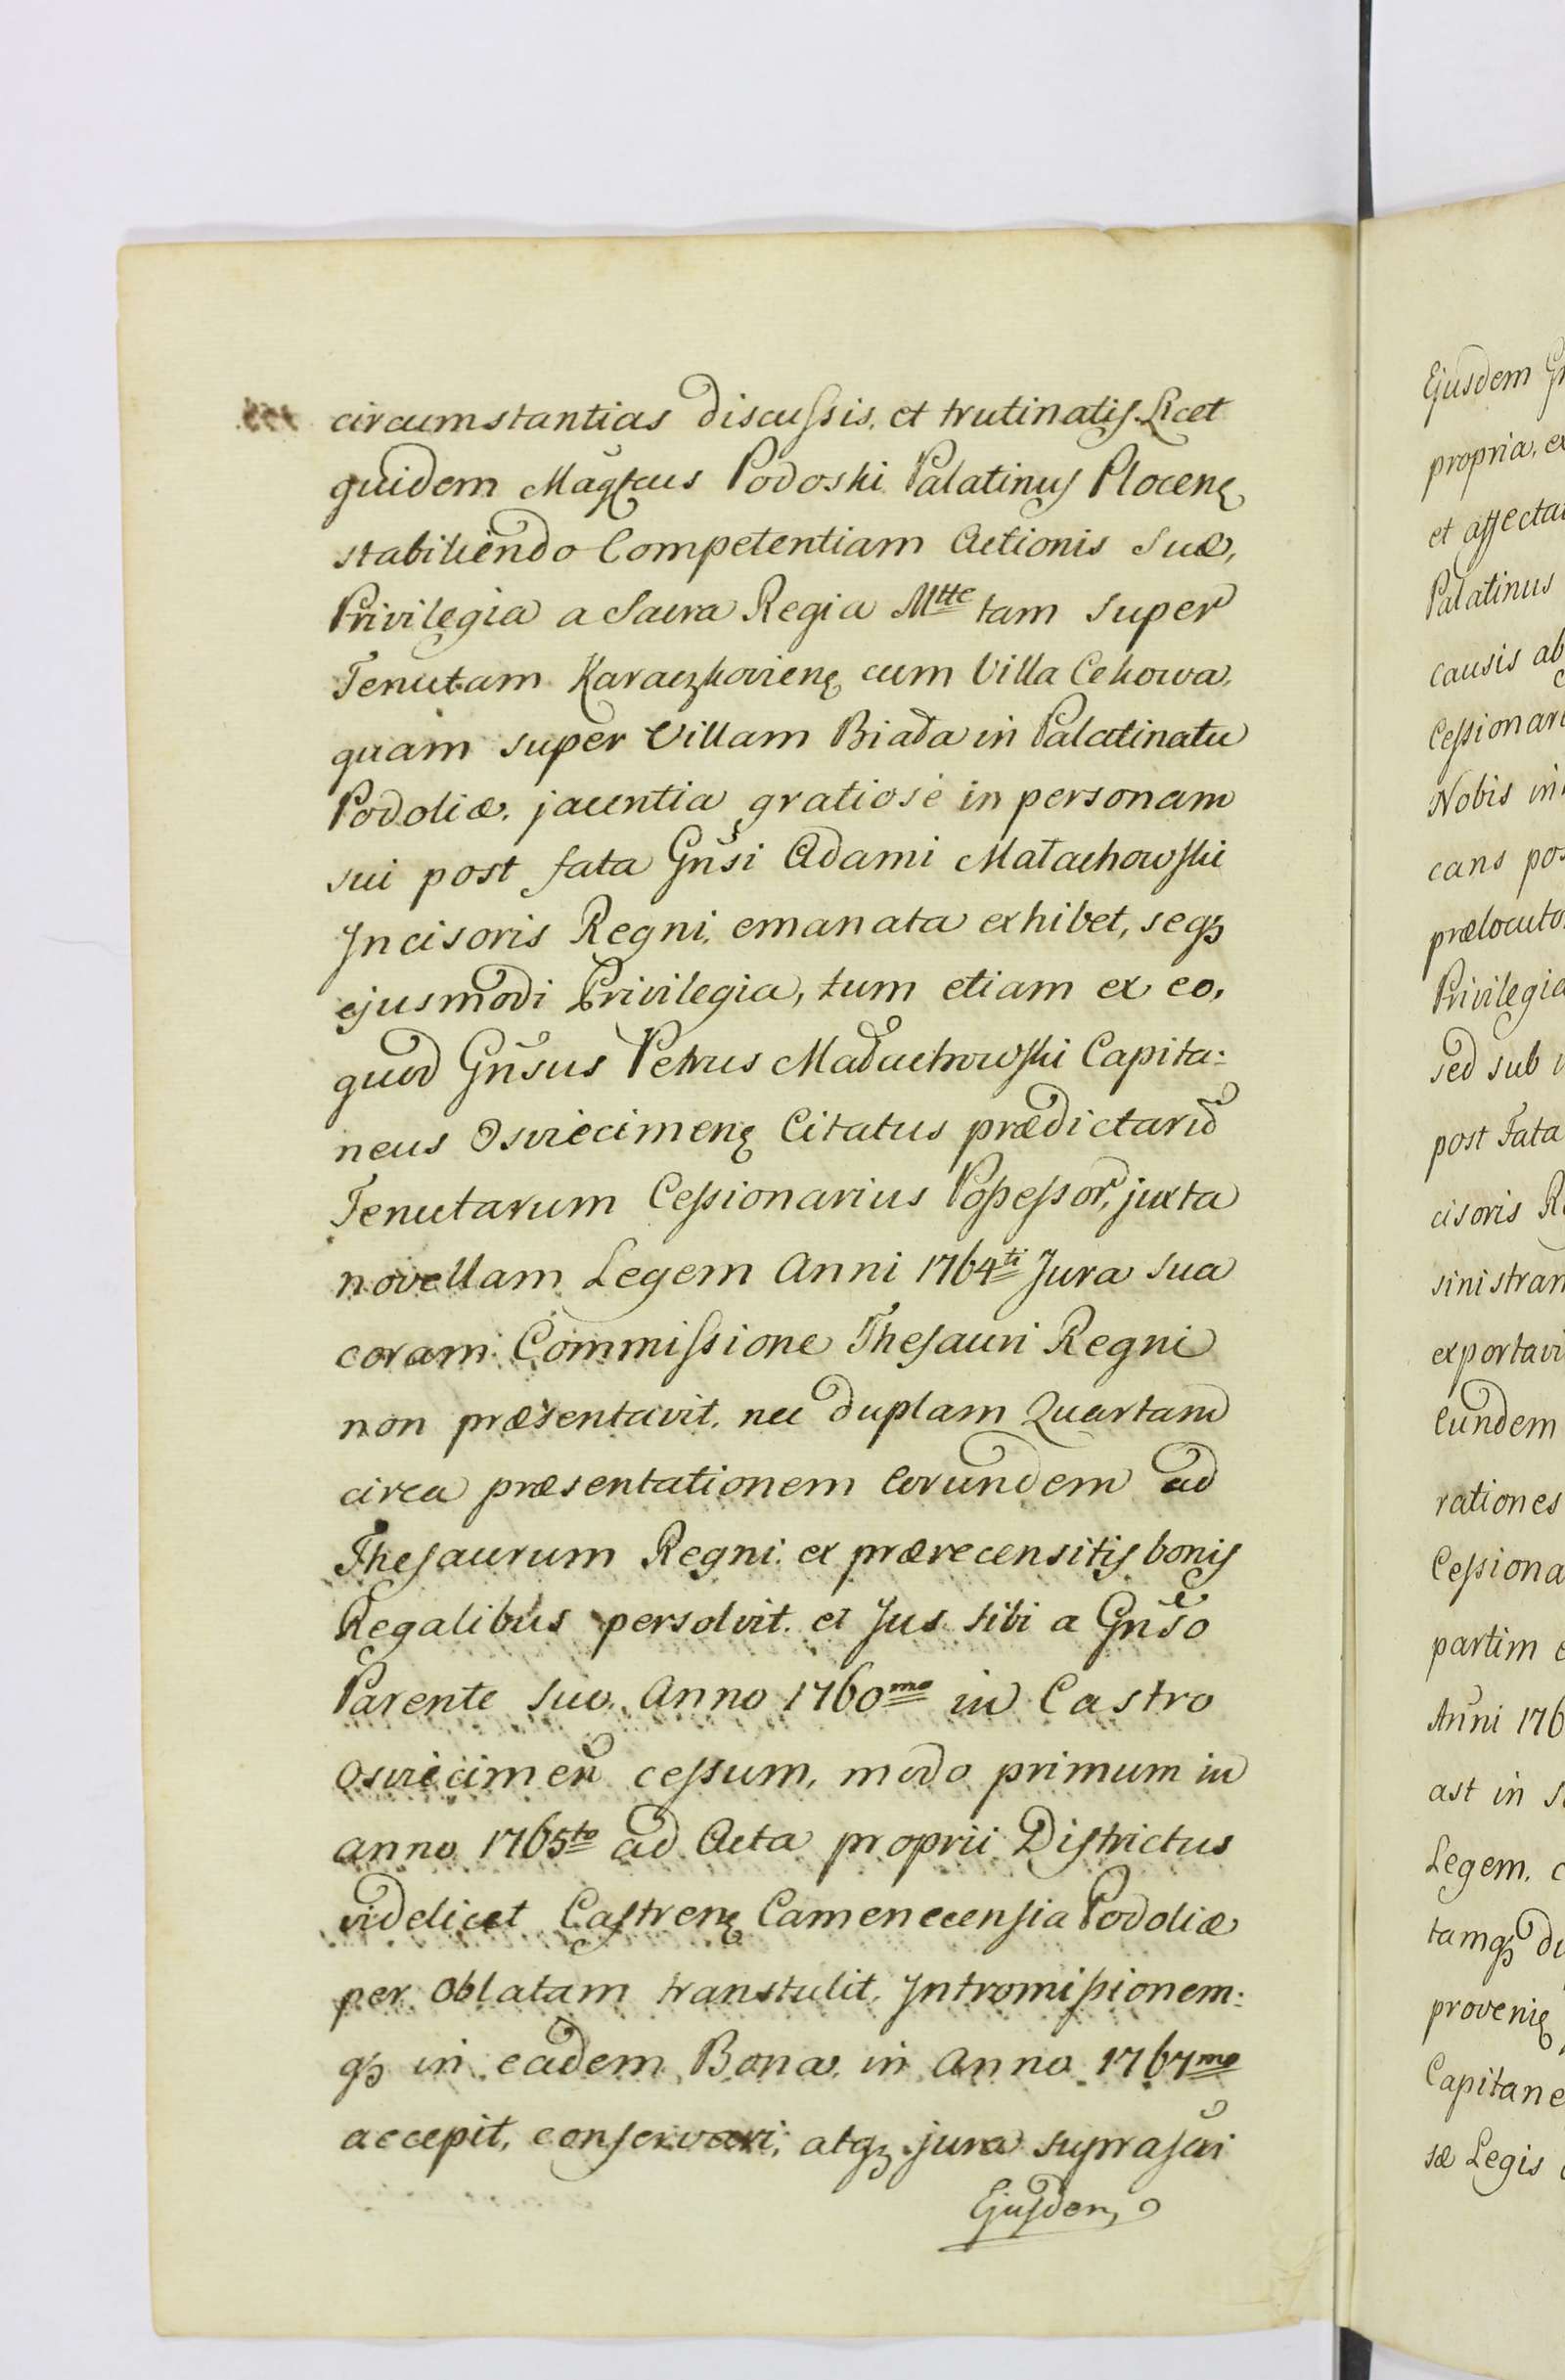 circumstantias discussis, et trutinatis. Licet
quidem Magfcus Podoski Palatinus Plocenę
stabiliendo Competentiam Actionis Suæ,
Privilegia a Sacra Regia Mtte tam super
Tenutam Karaczkovienę cum Villa Cekowa,
quam super Villam Biała in Palatinatu
Podoliæ, jacentia gratiose in personam
sui post fata Gnsi Adami Małachowski
Incisoris Regni, emanata exhibet, seqꝫ
ejusmodi Privilegia, tum etiam ex eo,
quod Gnsus Petrus Małachowski Capita:
neus Osviecimenę Citatus prædictarū
Tenutarum Cessionarius Possessor, juxta
novellam Legem Anni 1764ti Jura sua
coram Commissione Thesauri Regni
non præsentavit, nec duplam Quartam
circa præsentationem Eorundem ad
Thesaurum Regni ex prærecensitis bonis
Regalibus persolvit, et Jus sibi a Gnso
Parente suo, Anno 1760mo in Castro
Osviecimen cessum, modo primum in
anno 1765to ad Acta proprii Districtus
videlicet Castrenę Camenecensia Podoliæ
per Oblatam transtulit, Intromissionem:
qꝫ in eadem Bona, in Anno 1767mo
accepit, conservari, atqꝫ jura supra
Ejusdem
Ejusdem
propria, e
et affecta
Palatinus
causis ab
Cessionari
Nobis in
cans pos
prælocuto
Privilegia
sed sub
post Fata
cisoris R
sinistram
exportavi
Eundem
rationes
Cessiona
partim e
Anni 176
ast in s
Legem, c
tamqꝫ du
provenię
Capitane
sæ Legis